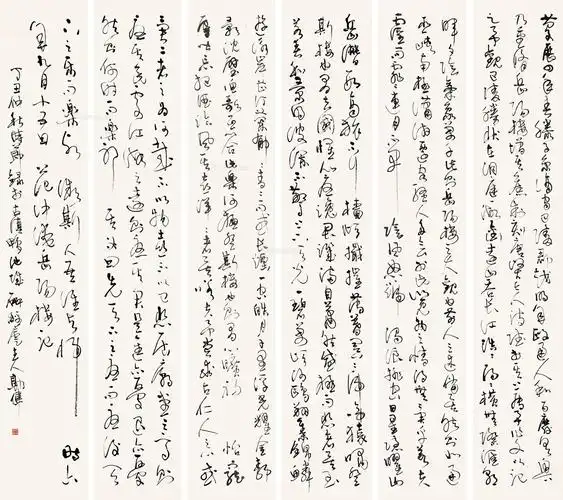 慶曆四年春滕子京謫守巴陵郡越明年政通人和百廢具興
乃重修岳陽樓增其舊制刻唐賢今人詩賦於其上屬予作文以記
之予觀夫巴陵勝狀在洞庭一湖銜遠山吞長江浩浩湯湯橫無際涯朝
暉夕陰氣象萬千此則岳陽樓之大觀也前人之述備矣然則北通
巫峽南極瀟湘遷客騷人多會於此覽物之情得無異乎若夫
霪雨霏霏連月不開陰風怒號濁浪排空日星隱曜山
岳潛形商旅不行檣傾楫摧薄暮冥冥虎嘯猿啼登
斯樓也則有去國懷鄉憂讒畏譏滿目蕭然感極而悲者矣至
若春和景明波瀾不驚上下天光一碧萬頃沙鷗翔集錦鱗
游泳岸芷汀蘭郁郁青青而或長煙一空皓月千里浮光耀金靜
影沉璧漁歌互答此樂何極登斯樓也則有心曠神怡寵
辱皆忘把酒臨風其喜洋洋者矣嗟夫予嘗求古仁人之心或
異二者之為何哉不以物喜不以己悲居廟堂之高則
憂其民處江湖之遠則憂其君是進亦憂退亦憂
然則何時而樂耶其必曰先天下之憂而憂後天
下之樂而樂歟噫微斯人吾誰與歸時六
年九月十五日范仲淹岳陽樓記
丁丑仲秋時節錄於古滇鴨池城主人